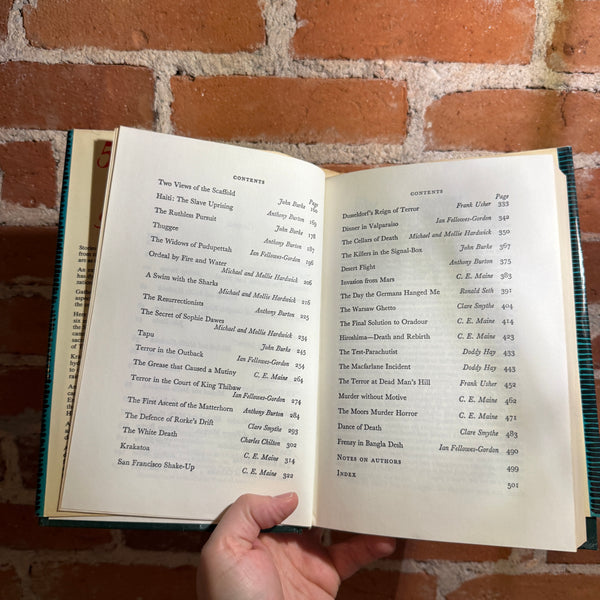 CONTENTS
Page
Two Views of the Scaffold John Burke 160
Haiti: The Slave Uprising Anthony Burton 169
The Ruthless Pursuit John Burke 178
Thuggee Anthony Burton 187
The Widows of Pudupettah Ian Fellowes-Gordon 196
Ordeal by Fire and Water
Michael and Mollie Hardwick 206
A Swim with the Sharks
Michael and Mollie Hardwick 216
The Resurrectionists Anthony Burton 226
The Secret of Sophie Dawes
Michael and Mollie Hardwick 234
Tapu John Burke 245
Terror in the Outback Ian Fellowes-Gordon 254
The Grease that Caused a Mutiny C. E. Maine 264
Terror in the Court of King Thibaw
Ian Fellowes-Gordon 274
The First Ascent of the Matterhorn Anthony Burton 284
The Defence of Rorke's Drift Clare Smythe 293
The White Death Charles Chilton 302
Krakatoa C. E. Maine 314
San Francisco Shake-Up C. E. Maine 322
CONTENTS
Page
Dusseldorf's Reign of Terror Frank Usher 333
Dinner in Valparaiso Ian Fellowes-Gordon 342
The Cellars of Death Michael and Mollie Hardwick 350
The Killers in the Signal-Box John Burke 367
Desert Flight Anthony Burton 375
Invasion from Mars C. E. Maine 383
The Day the Germans Hanged Me Ronald Seth 394
The Warsaw Ghetto Clare Smythe 404
The Final Solution to Oradour C. E. Maine 414
Hiroshima—Death and Rebirth C. E. Maine 425
The Test-Parachutist Doddy Hay 435
The Macfarlane Incident Doddy Hay 443
The Terror at Dead Man's Hill Frank Usher 452
Murder without Motive C. E. Maine 462
The Moors Murder Horror C. E. Maine 471
Dance of Death Clare Smythe 483
Frenzy in Bangla Desh Ian Fellowes-Gordon 490
NOTES ON AUTHORS 499
INDEX 501